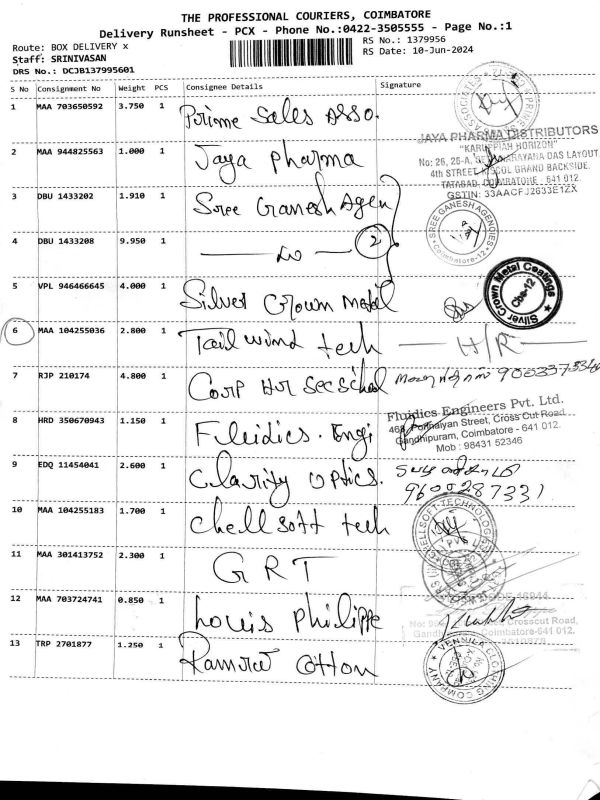 THE PROFESSIONAL COURIERS, COIMBATORE
Delivery Runsheet - PCX - Phone No.:0422-3505555 - Page No.:1
Route: BOX DELIVERY x
RS No.: 1379956
Staff: SRINIVASAN
RS Date: 10-Jun-2024
DRS No.: DCJB137995601
S No Consignment No Weight PCS Consignee Details Signature
1 MAA 703650592 3.750 1 Prime Sales Asso.
JAYA PHARMA DISTRIBUTORS
"KARUPPIAH HORIZON"
2 MAA 944825563 1.000 1 Jaya Pharma
No: 26, 26-A, DAS LAYOUT
4th STREET, GRAND BACKSIDE,
TATABAD, COIMBATORE - 641 012.
GSTIN: 33AACFJ2633E1ZX
3 DBU 1433202 1.910 1 Sree Ganesh Agen
SREE GANESH AGENCIES
Coimbatore-12
4 DBU 1433208 9.950 1 Do 2
5 VPL 946466645 4.000 1 Silver Crown Metal
Silver Crown Metal Coatings
Cbe-12
6 MAA 104255036 2.800 1 Tail wind tech H/R
7 RJP 210174 4.800 1 Corp Hr Sec School
Fluidics Engineers Pvt. Ltd.
8 HRD 350670943 1.150 1 Fluidics. Engi
Street, Cross Cut Road
Gandhipuram, Coimbatore - 641 012.
Mob : 98431 52346
9 EDQ 11454041 2.600 1 Clarity Optics.
9600287331
10 MAA 104255183 1.700 1 Chellsoft tech
CHELLSOFT TECHNOLOGIES
11 MAA 301413752 2.300 1 GRT
12 MAA 703724741 0.850 1 Louis Philippe
Crosscut Road,
Coimbatore-641 012.
13 TRP 2701877 1.250 1 Ramraj Cotton
CLOTHING COMPANY